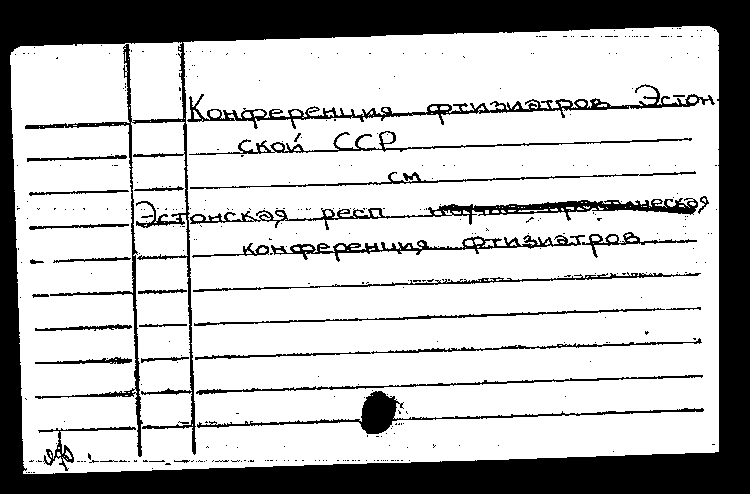 Конференция фтизиатров Эстон-
ской ССР
см
Эстонская респ научно-практическая
конференция фтизиатров